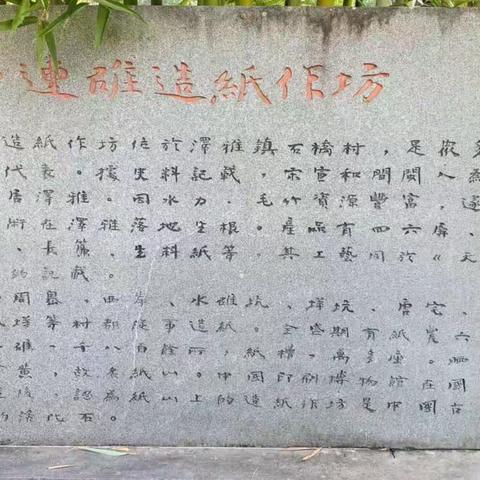 連碓造紙作坊
造紙作坊位於澤雅鎮石橋村，是
代表。據史料記載，宋宣和間閩人
居澤雅。因水力、毛竹資源豐富，遂
術在澤雅落地生根。產品有四六屏、
、長簾、生料紙等，其工藝同於《天
的記載。
周岙、西岸、水碓坑、垟坑、唐宅、
垟等村都從事造紙。全盛期有紙農六
碓一千八百餘所，紙槽一萬多座。
故名紙山。中國印刷博物館在國
認為紙山上的造紙作坊是中國古
的活化石。